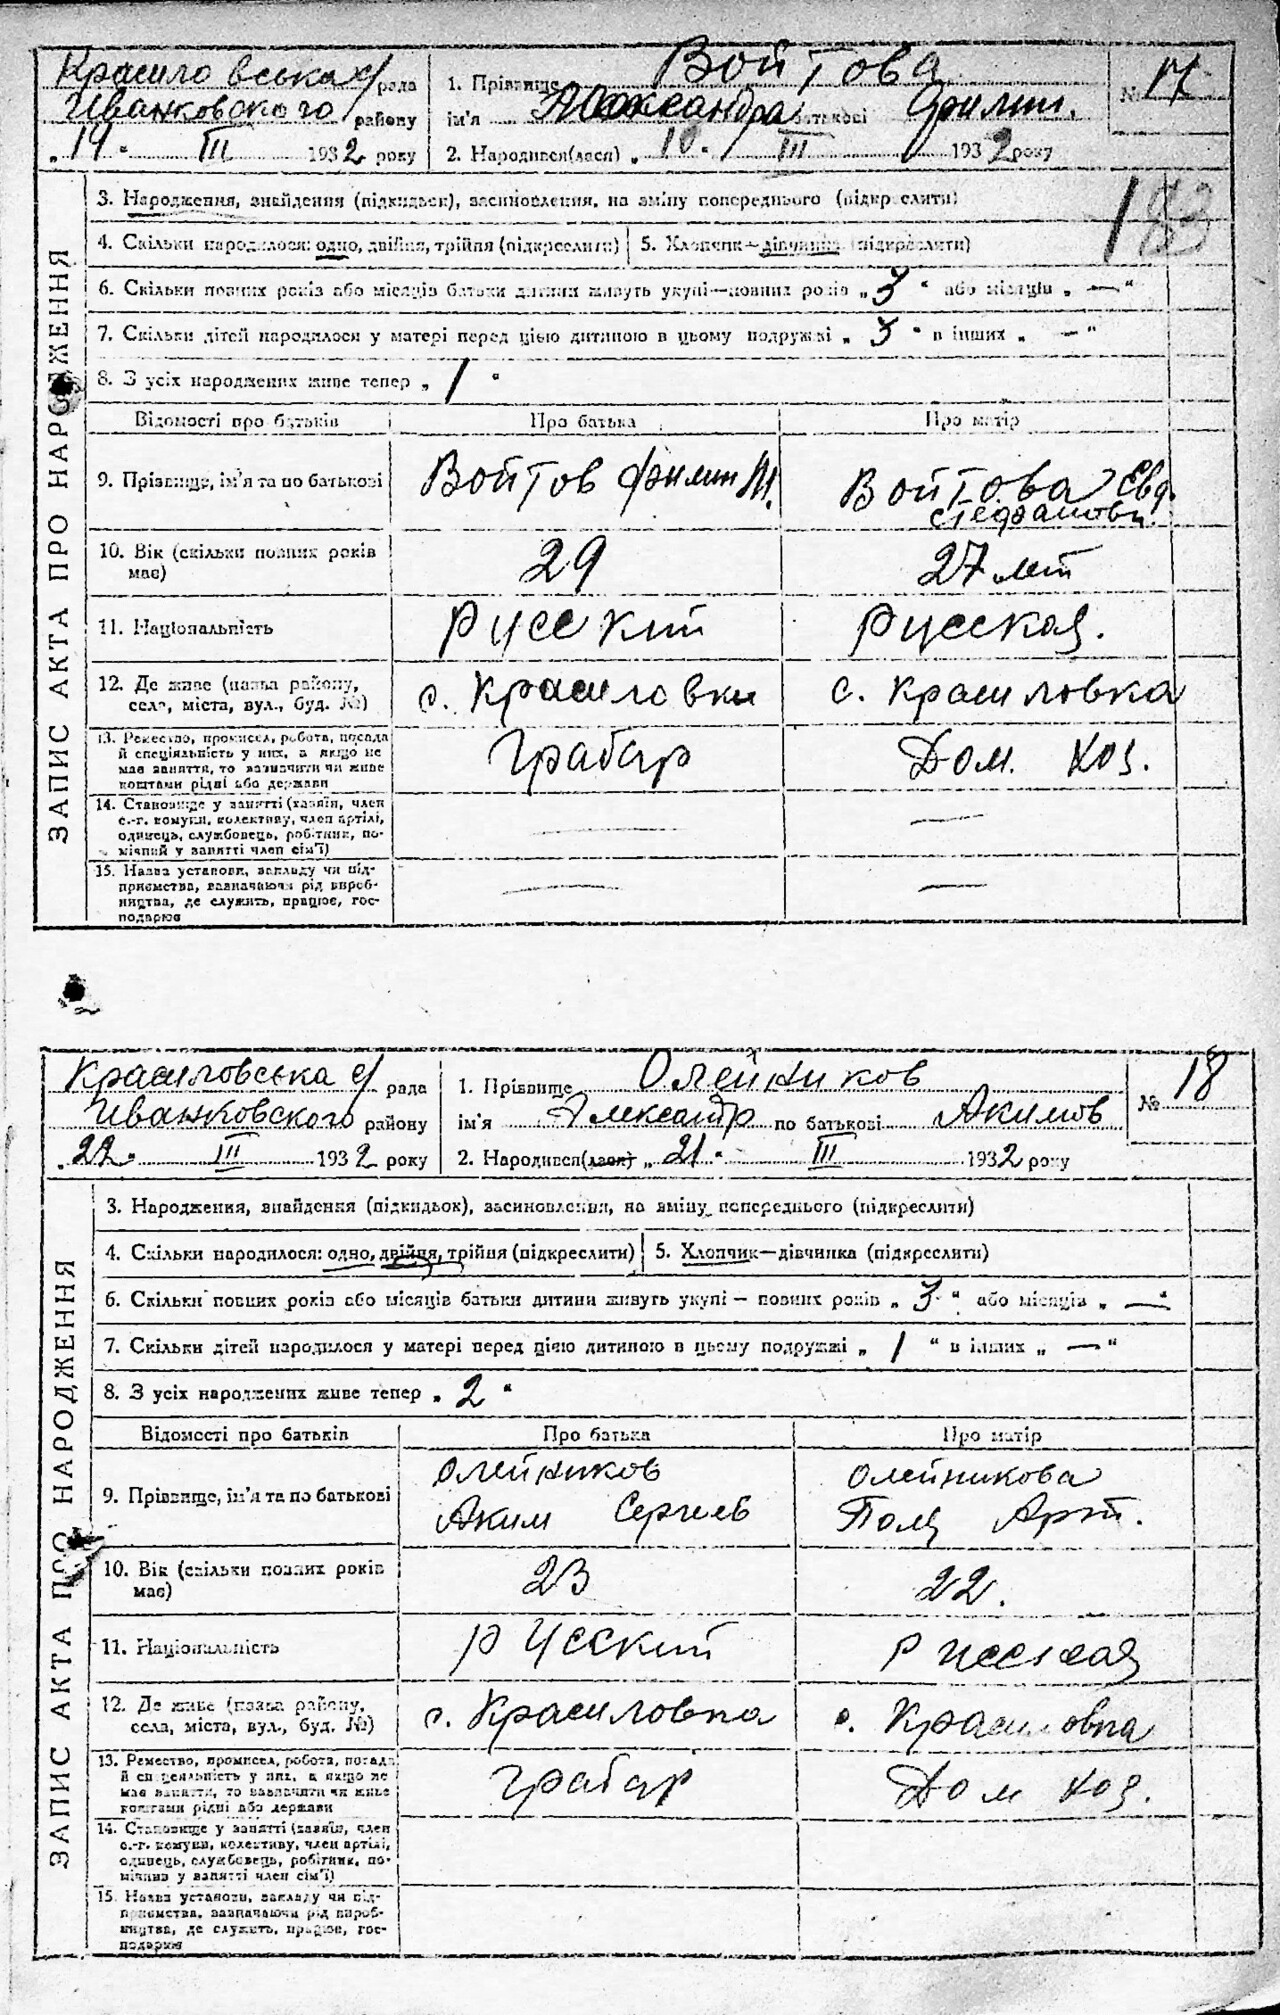 Красиловська с/рада
Иванковского району
„ 14 " III 1932 року
1. Прізвище Войтова
ім'я Александра по батькові Филип.
2. Народився(лася) „ 10. III 1932 року
№ 17
183
ЗАПИС АКТА ПРО НАРОДЖЕННЯ
3. Народження, знайдення (підкидьок), засиновлення, на зміну попереднього (підкреслити)
4. Скільки народилося: одно, двійня, трійня (підкреслити)
5. Хлопчик—дівчинка (підкреслити)
6. Скільки повних років або місяців батьки дитини живуть укупі—повних років „ 3 " або місяців „ — "
7. Скільки дітей народилося у матері перед цією дитиною в цьому подружжі „ 3 " в інших „ — "
8. З усіх народжених живе тепер „ 1 "
Відомості про батьків
Про батька
Про матір
9. Прізвище, ім'я та по батькові
Войтов Филип
Войтова Евд.
Стефановн.
10. Вік (скільки повних років
має)
29
27 лет
11. Національність
Русский
Русская.
12. Де живе (назва району,
села, міста, вул., буд. №)
с. Красиловки
с. Красиловка
13. Ремество, промисел, робота, посада
й спеціяльність у них, а якщо не
має заняття, то зазначити чи живе
коштами рідні або держави
Грабар
Дом. хоз.
14. Становище у занятті (хазяїн, член
с.-г. комуни, колективу, член артілі,
одинець, службовець, робітник, по-
мічний у занятті член сім'ї)
—
—
15. Назва установи, закладу чи під-
приємства, зазначаючи рід вироб-
ництва, де служить, працює, гос-
подарює
—
—
Красиловська с/рада
Иванковского району
„ 22. " III 1932 року
1. Прізвище Олейников
ім'я Александр по батькові Акимов
2. Народився(лася) „ 21. " III 1932 року
№ 18
ЗАПИС АКТА ПРО НАРОДЖЕННЯ
3. Народження, знайдення (підкидьок), засиновлення, на зміну попереднього (підкреслити)
4. Скільки народилося: одно, двійня, трійня (підкреслити)
5. Хлопчик—дівчинка (підкреслити)
6. Скільки повних років або місяців батьки дитини живуть укупі — повних років „ 3 " або місяців „ — "
7. Скільки дітей народилося у матері перед цією дитиною в цьому подружжі „ 1 " в інших „ — "
8. З усіх народжених живе тепер „ 2 "
Відомості про батьків
Про батька
Про матір
9. Прізвище, ім'я та по батькові
Олейников
Аким Сергеев
Олейникова
Пол. Арт.
10. Вік (скільки повних років
має)
23
22.
11. Національність
Русский
Русская
12. Де живе (назва району,
села, міста, вул., буд. №)
с. Красиловка
с. Красиловка
13. Ремество, промисел, робота, посада
й спеціяльність у них, а якщо не
має заняття, то зазначити чи живе
коштами рідні або держави
Грабар
Дом хоз.
14. Становище у занятті (хазяїн, член
с.-г. комуни, колективу, член артілі,
одинець, службовець, робітник, по-
мічний у занятті член сім'ї)
15. Назва установи, закладу чи під-
приємства, зазначаючи рід вироб-
ництва, де служить, працює, гос-
подарює